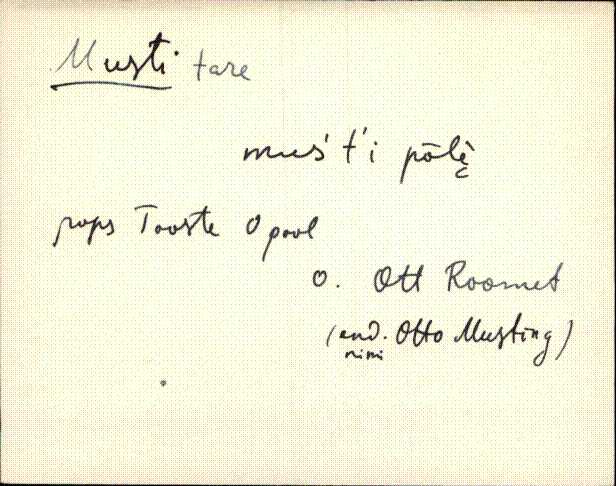 Musti tare
muś t'i pōlè̬
pops Tooste O pool
O. Ott Roomet
(end. Otto Musting)
nimi